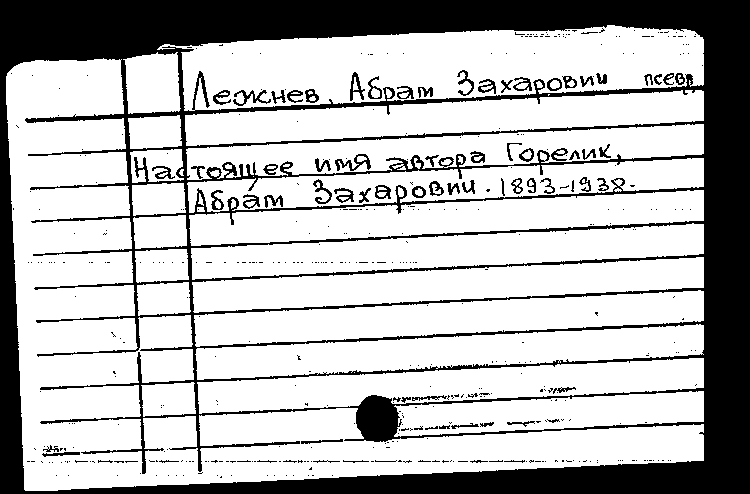 Лежнев, Абрам Захарович псевд.
Настоящее имя автора Горелик,
Абрам Захарович. 1893-1938.